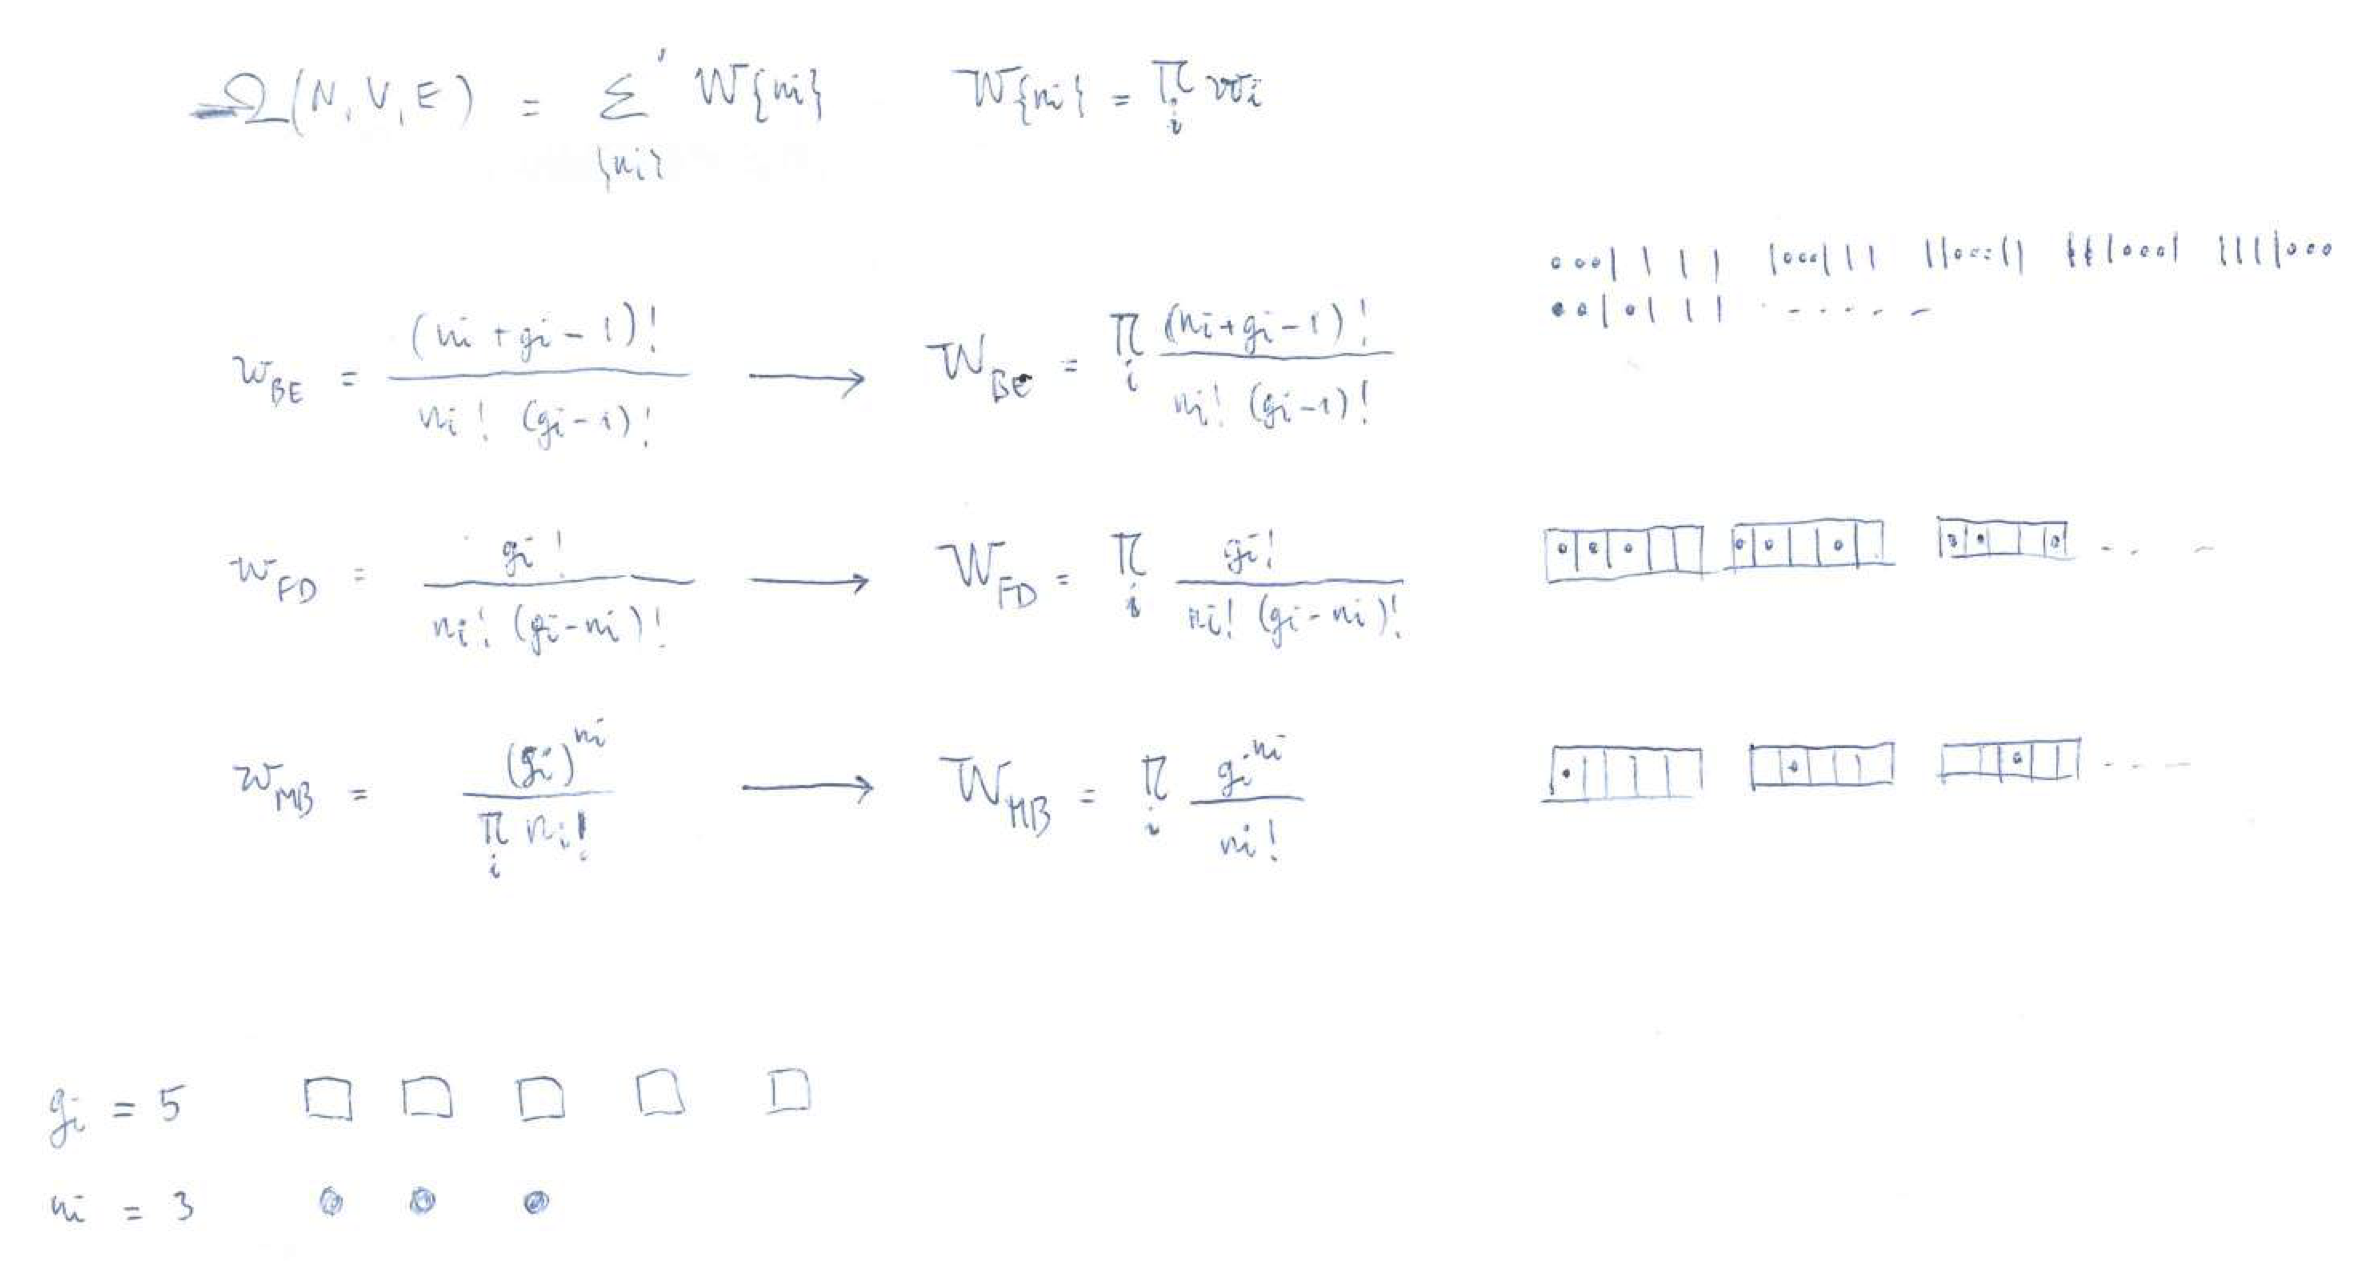 Ω(N,V,E) = Σ' {ni} W{ni}    W{ni} = Π i wi
w BE = (ni + gi - 1)! / ni! (gi - 1)! ⟶ W BE = Π i (ni + gi - 1)! / ni! (gi - 1)!
w FD = gi! / ni! (gi - ni)! ⟶ W FD = Π i gi! / ni! (gi - ni)!
w MB = (gi)^ni / Π i ni! ⟶ W MB = Π i gi^ni / ni!
gi = 5
ni = 3